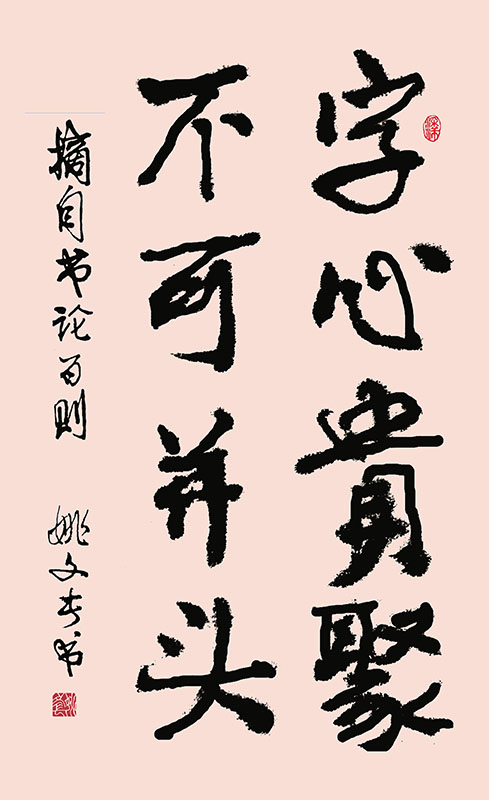 字心貴聚
不可并头
摘自书论百则
姚文春书